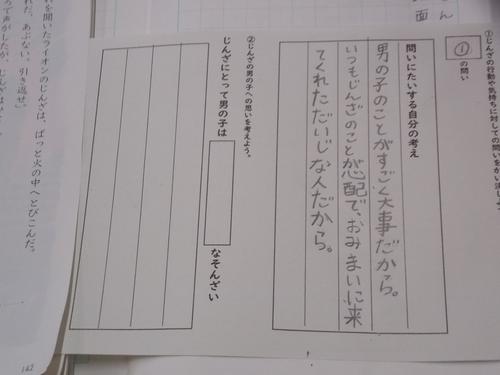 ん
面
①じんざの行動や気持ちに対しての問いをかい決しよう。
①
の問い
問いにたいする自分の考え
男の子のことがすごく大事だから。
いつもじんざのことが心配で、おみまいに来
てくれただいじな人だから。
②じんざの男の子への思いを考えよう。
じんざにとって男の子は
なそんざい
を聞いたライオンのじんざは、ぱっと火の中へとびこんだ。
れだ、あぶない。引き返せ。」
ろで声がしたが、じんざは
142